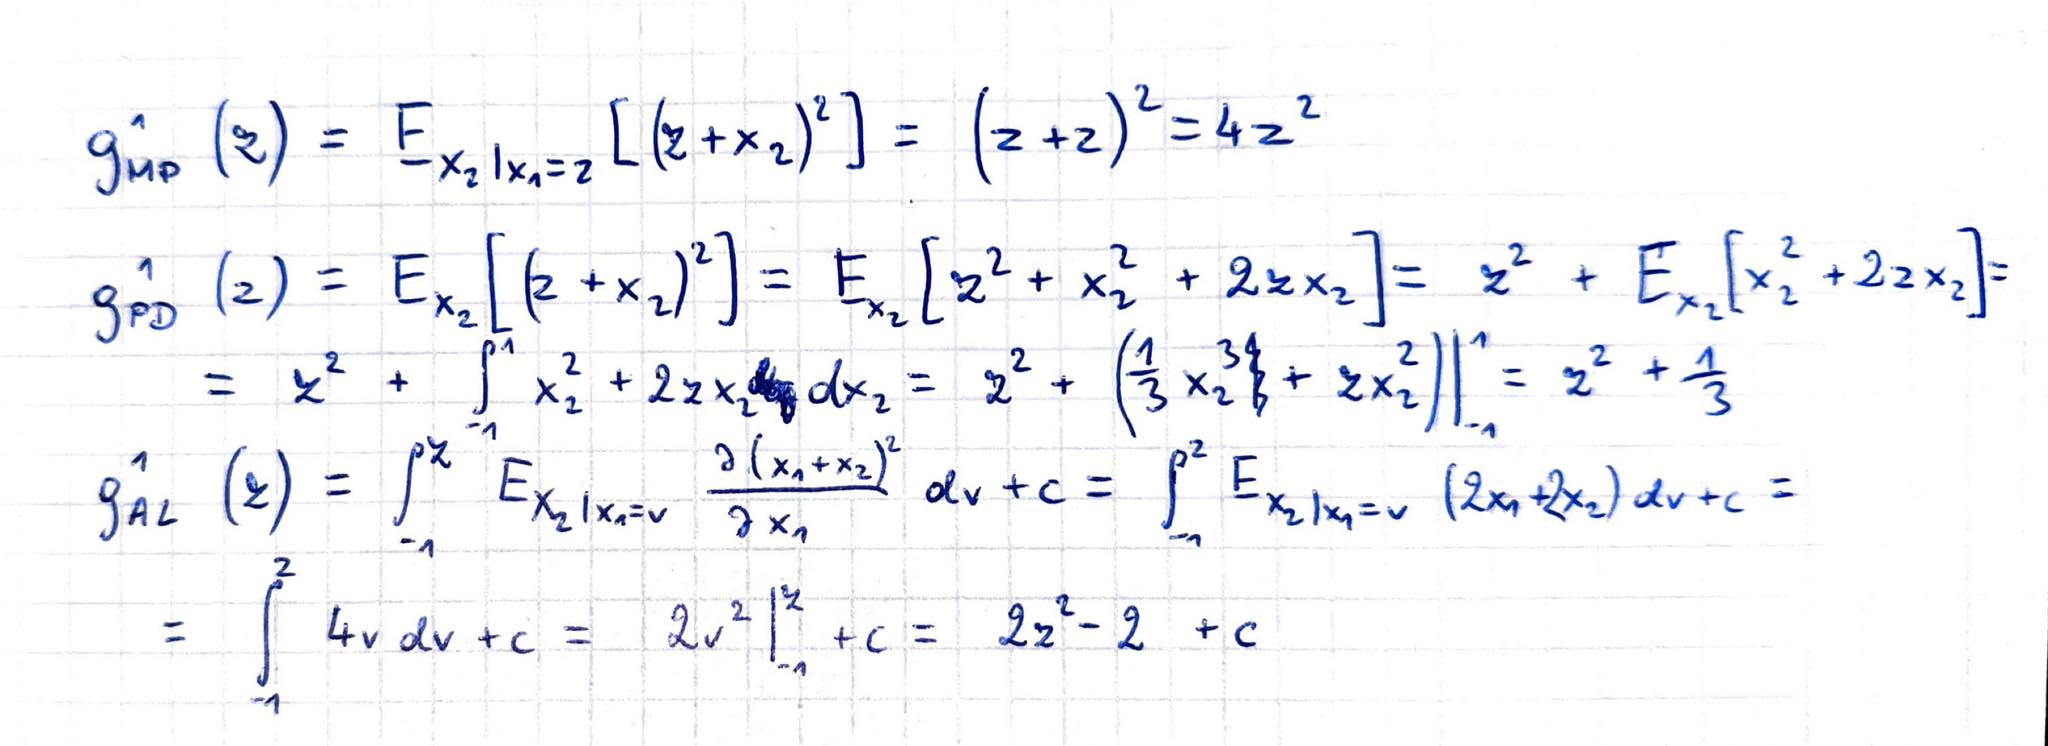 g^1_{MP} (z) = E_{x_2|x_1=z} [(z+x_2)^2] = (z+z)^2 = 4z^2
g^1_{PD} (z) = E_{x_2} [(z+x_2)^2] = E_{x_2} [z^2 + x_2^2 + 2zx_2] = z^2 + E_{x_2} [x_2^2 + 2zx_2] =
= z^2 + ∫_{-1}^{1} x_2^2 + 2zx_2 dx_2 = z^2 + (1/3 x_2^3 + zx_2^2)|_{-1}^{1} = z^2 + 1/3
g^1_{AL} (z) = ∫_{-1}^{z} E_{x_2|x_1=v} ∂(x_1+x_2)^2/∂x_1 dv + c = ∫_{-1}^{z} E_{x_2|x_1=v} (2x_1+2x_2) dv + c =
= ∫_{-1}^{z} 4v dv + c = 2v^2 |_{-1}^{z} + c = 2z^2 - 2 + c